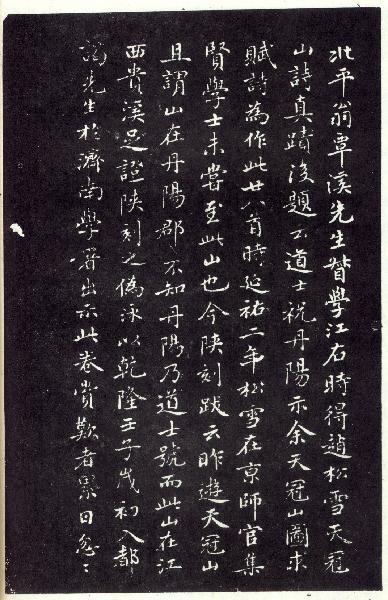 北平翁覃溪先生督學江右時得趙松雪天冠
山詩真蹟後題云道士祝丹陽示余天冠山圖求
賦詩為作此廿八首時延祐二年松雪在京師官集
賢學士未嘗至此山也今陝刻跋云昨遊天冠山
且謂山在丹陽郡不知丹陽乃道士號而此山在江
西貴溪足證陝刻之偽泳以乾隆壬子歲初入都
謁先生於濟南學署出示此卷賞歎者累日忽〻